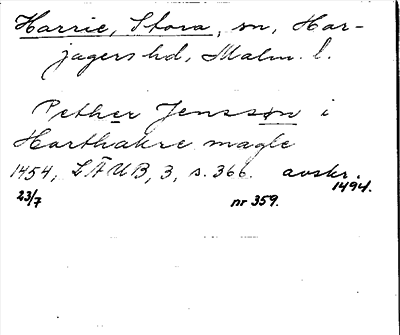 Harrie, Stora, sn, Har-
jagers hd, Malm. l.
Pether Jensson i
Harthakre magle
1454, LÄUB, 3, s. 366. avskr.
1494.
23/7
nr 359.